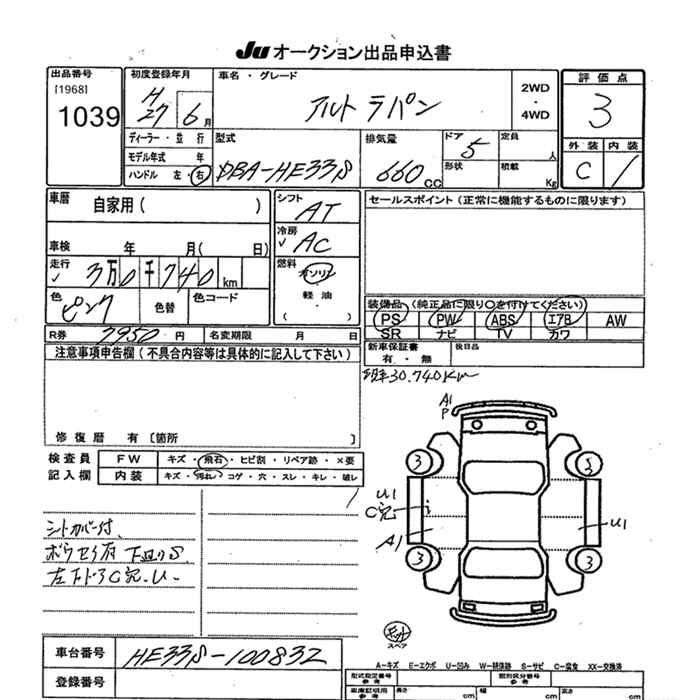 Ju オークション出品申込書
出品番号
[1968]
1039
初度登録年月
H
27 6月
車名・グレード
アルト ラパン
2WD
・
4WD
評価点
3
外装 内装
C 1
ディーラー・並行
モデル年式 年
ハンドル 左・右
型式
DBA-HE33S
排気量
660 CC
ドア 5
形状
定員
人
積載
Kg
車歴
自家用( )
車検 年 月( 日)
走行
3万0千740km
色
ピンク
色替
色コード
シフト
AT
冷房
AC
燃料
ガソリン
・
軽油
・
( )
セールスポイント(正常に機能するものに限ります)
装備品(純正品に限り○を付けてください)
PS PW ABS エアB AW
SR ナビ TV カワ
R券 7950 円 名変期限 月 日
新車保証書
有・無
後日品
注意事項申告欄(不具合内容等は具体的に記入して下さい)
30,740Km
修復歴 有 [箇所 ]
検査員
記入欄
FW キズ・飛石・ヒビ割・リペア跡・×要
内装 キズ・汚れ・コゲ・穴・スレ・キレ・破レ
シートカバー付
A1
P
3 3
U1
A1
U1
3 3
スペア
車台番号 HE33S-100832
登録番号
A-キズ E-エクボ U-凹み W-補修跡 S-サビ C-腐食 XX-交換済
型式指定番号
参考
類別区分番号
参考
長さ cm
幅 cm
高さ cm